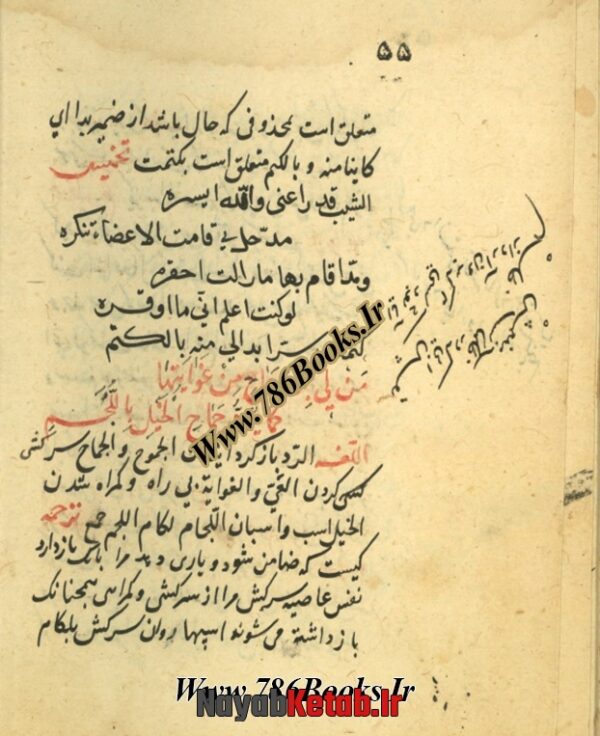 ۵۸
متعلق است بمحذوفی که حال باشد از ضمیر بدا ای
کاینا منه و بالکتم متعلق است بکتمت تخمیس
الشیب قد راعنی والله ایسره
مذ حل فی قامت الاعضاء تنکره
ومذ اقام بها مازالت احقره
لو کنت اعلم انی ما اوقره
کتمت سرا بدا لی منه بالکتم
مَن لِی بِرَدِّ جِمَاحٍ مِن غَوایَتِها
کَما یُرَدُّ جِمَاحُ الخَیلِ بِاللُّجُمِ
اللغه الرد باز گردانیدن الجموح و الجماح سرکش
کشی کردن الغی والغوایة بی راه و گمراه شدن
الخیل اسب و اسبان اللجام لکام اللجم جمع ترجمه
کیست که ضامن شود و یاری دهد مرا بانک بازدارد
نفس عاصیه سرکش مرا از سرکشی و گمراهی همچنانک
بازداشته می شوند اسپهاء روان سرکش بلکام
Www.786Books.Ir
Www.786Books.Ir
NayabKetab.Ir